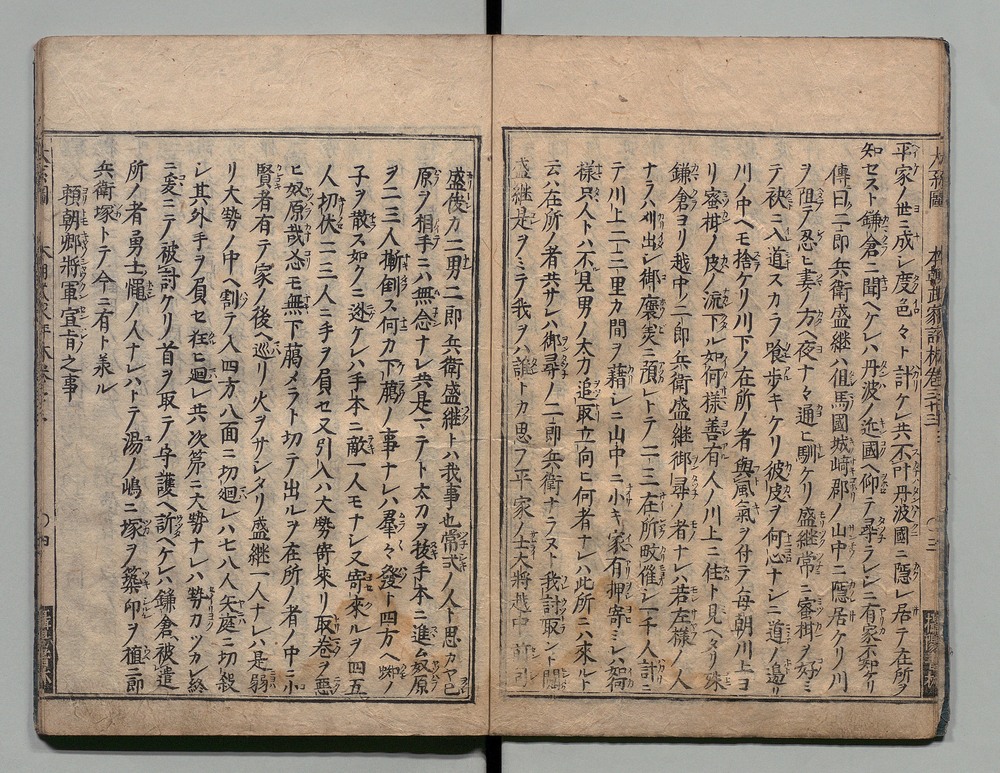 平家ノ世ニ成レ度色々ト計ケレ共不叶丹波國ニ隠レ居テ在所ヲ
知セスト鎌倉ニ聞ヘケレハ丹波ノ近國ヘ仰テ尋ラレシニ有家不知ケリ
傳曰二郎兵衛盛継ハ但馬國城崎郡ノ山中ニ隠居ケリ川
ヲ阻テ忍ヒ妻ノ方ヘ夜ナ々々通ヒ馴ケリ盛継常ニ蜜柑ヲ好ミ
テ袂ニ入道スカラ喰歩キケリ彼皮ヲ何心ナシニ道ノ邉リ
川ノ中ヘモ捨ケリ川下ノ在所ノ者與風氣ヲ付テ毎朝川上ヨ
リ蜜柑ノ皮ノ流下ル如何様善有人ノ川上ニ住ト見ヘタリ殊
鎌倉ヨリ越中二郎兵衛盛継御尋ノ者ナレハ若左様ノ人
ナラハ出シ御褒美ニ預レトテ二三在所催シ一千人計ニ
テ川上ニ上二里カ間ヲ藉シニ山中ニ小キ家有押寄ミレハ如何
様只人トハ不見男ノ太刀追取立向ヒ何者ナレハ此所ニハ來ルト
云ハ在所ノ者共サレハ御尋ノ二郎兵衛ナラスト我討取ント聞
盛継是ヲミテ我ヲハ誰トカ思フ平家ノ士大将越中
盛俊カ二男二郎兵衛盛継トハ我事也常式ノ人ト思カヤ己
原ヲ相手ニハ無念ナレ共是迠テト太刀ヲ抜手本ニ進ム奴原
ヲ二三人斬倒ス何カ下﨟ノ事ナレハ羣々發ト四方ヘ蜘ノ
子ヲ散ス如クニ迯ケレハ手本ニ敵一人モナシ又寄來ルヲ四五
人切伏ハ二三人ニ手ヲ負セ又引入ハ大勢寄來リ取巻ヲ悪
ヒ奴原哉迯モ無下﨟メラト切テ出ルヲ在所ノ者ノ中ニ小
賢者有テ家ノ後ヘ巡リ火ヲサシタリ盛継一人ナレハ是弱
リ大勢ノ中ヘ割テ入四方八面ニ切廻レハ七八人矢庭ニ切殺
シ其外手ヲ負セ狂ヒ廻レ共次第ニ大勢ナレハ勢カツカレ終
ニ爰ニテ被討ケリ首ヲ取テ守護ヘ訴ヘケレハ鎌倉被遣
所ノ者勇士ノ人ナレハトテ湯ノ嶋ニ塚ヲ築印ヲ植二郎
兵衛塚トテ今ニ有ト承ル
頼朝卿將軍宣旨之事